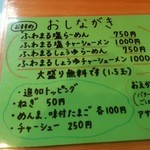 おすすめ おしながき
ふわまる塩らーめん 750円
ふわまる塩チャーシューメン 1000円
ふわまるしょうゆらーめん 750円
ふわまるしょうゆチャーシューメン 1000円
大盛り無料です(1.5玉)
・追加トッピング
・ねぎ 50円
・めんま、味付たまご 各100円
・チャーシュー 250円